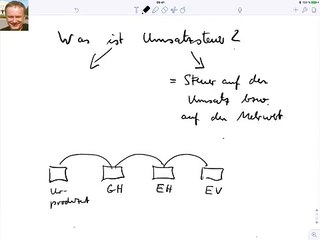 Was ist Umsatzsteuer?
= Steuer auf den
Umsatz bzw.
auf den Mehrwert
Ur-
produzent
GH
EH
EV